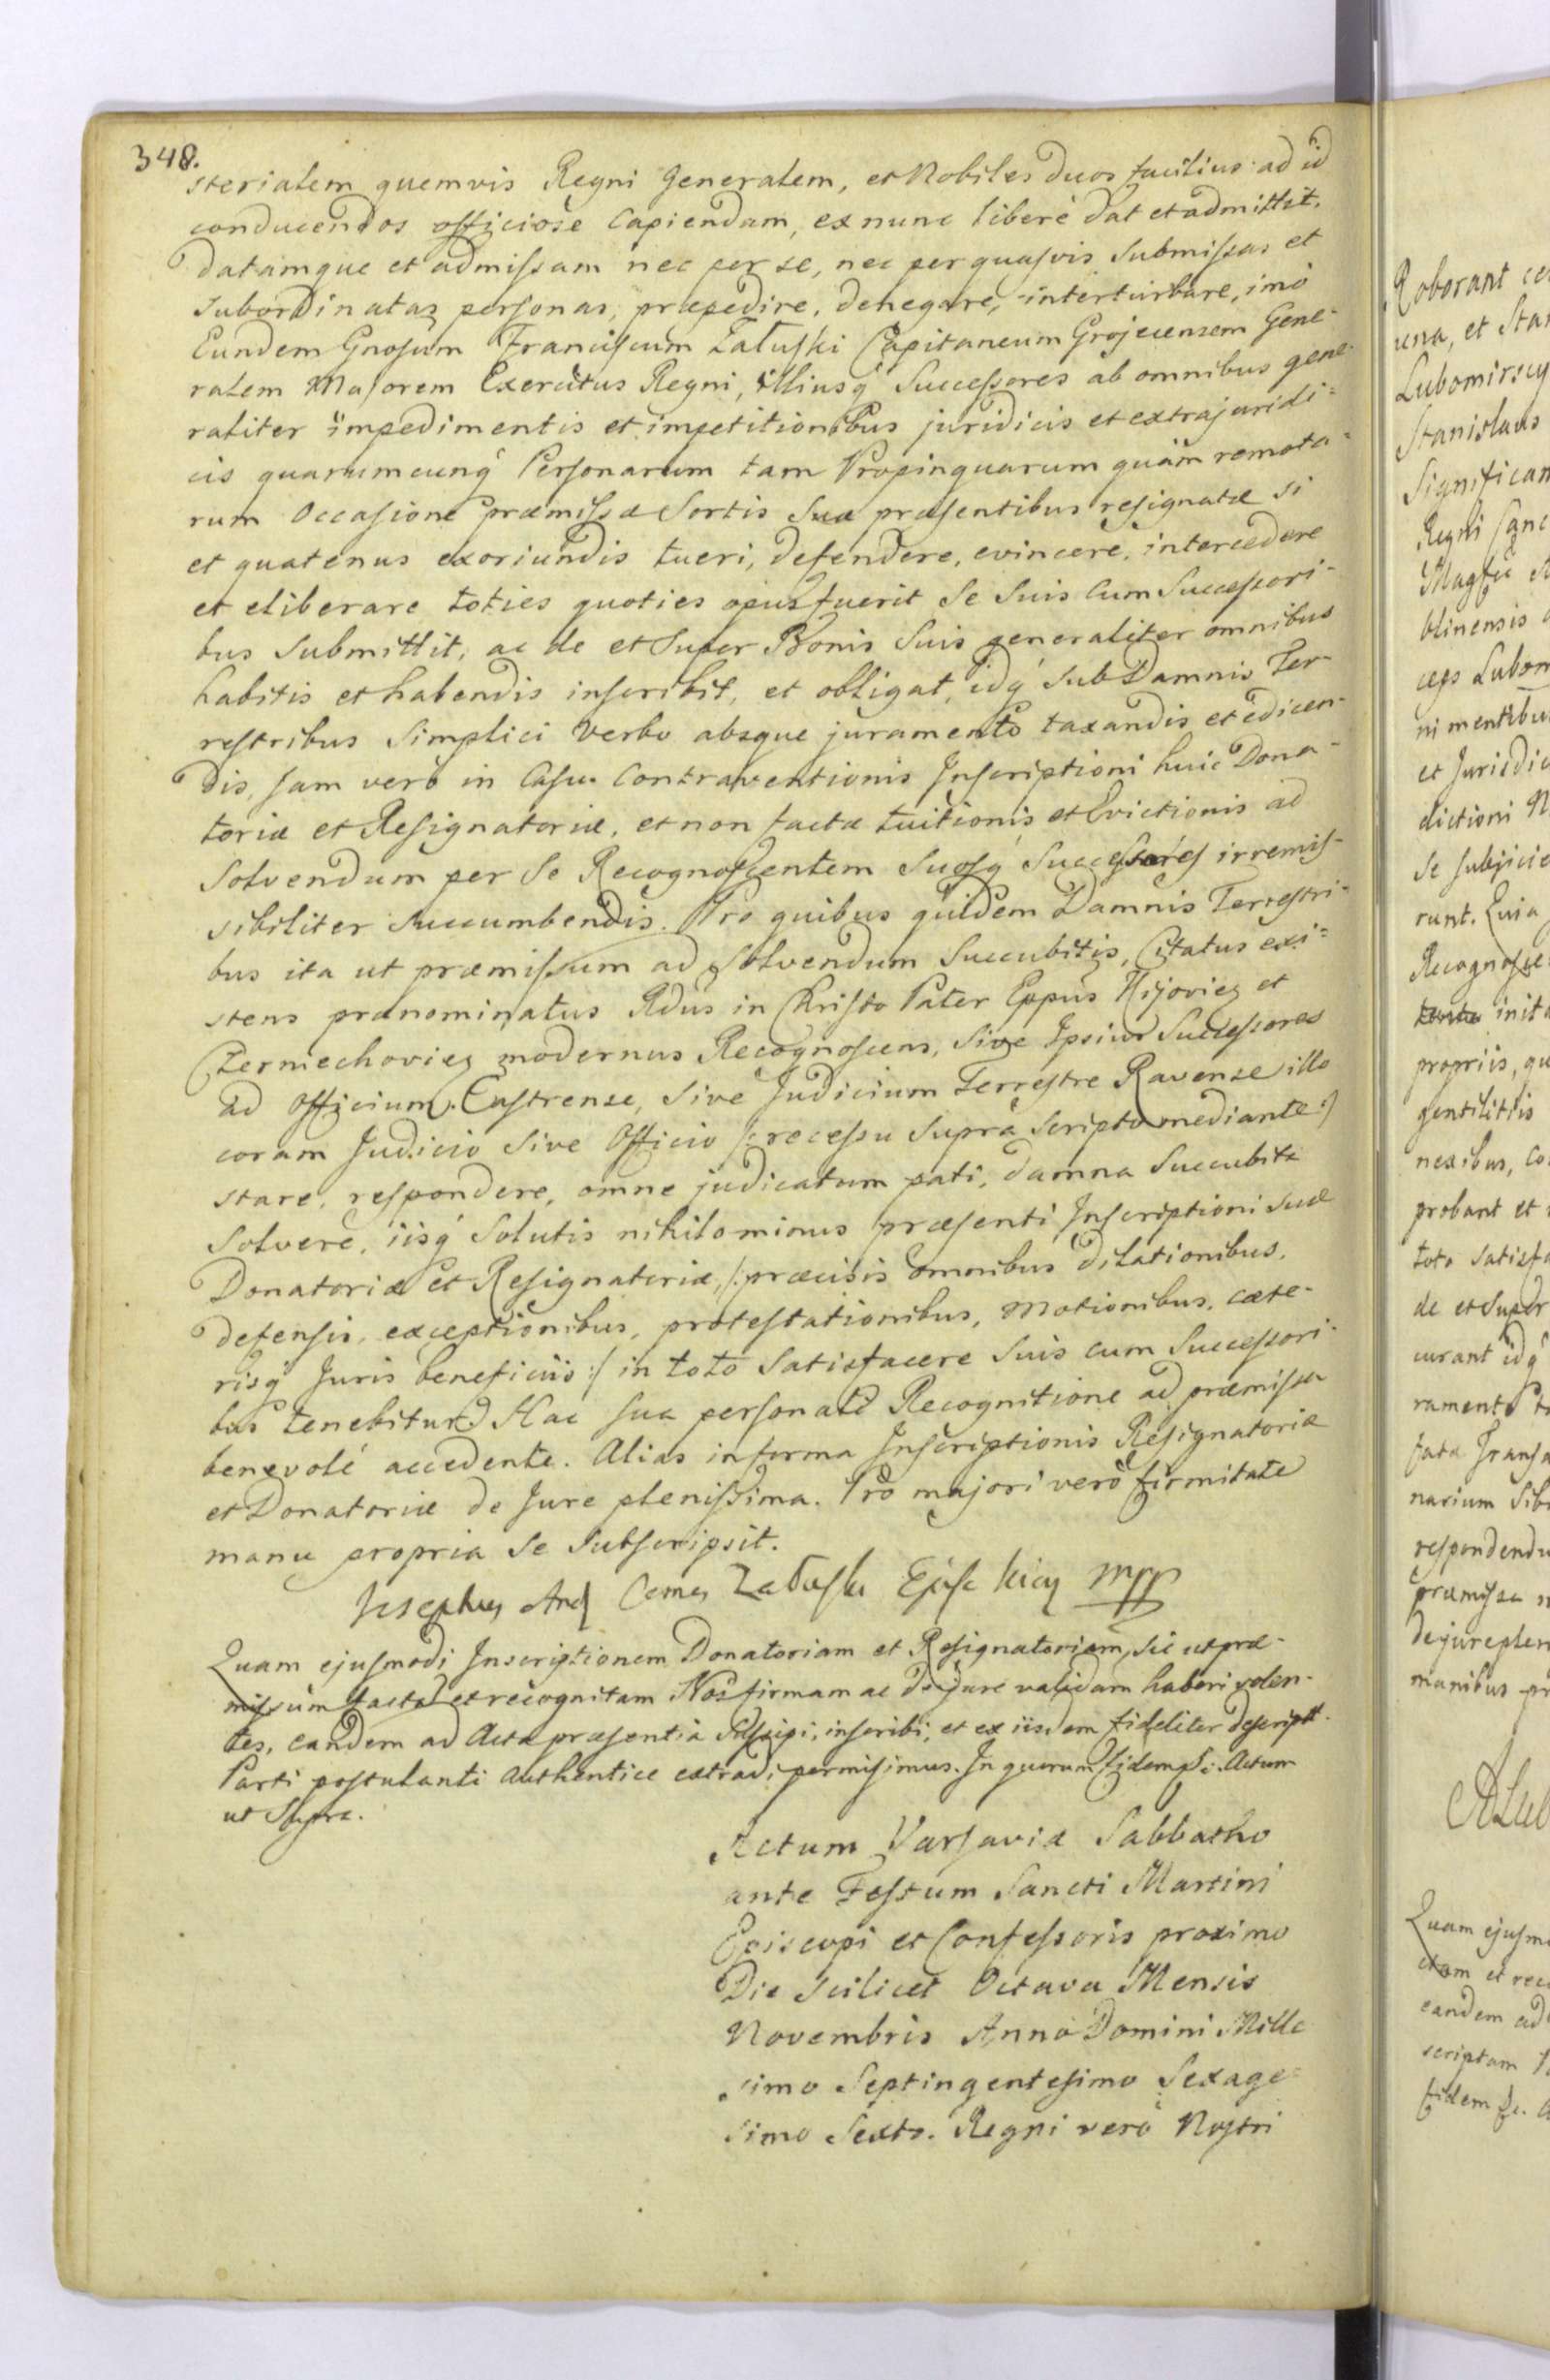 348.
sterialem quemvis Regni Generalem, et Nobiles duos facilius ad id
conducendos officiose Capiendam, ex nunc liberè dat et admittit.
datamque et admissam nec per se, nec per quasvis Submissas et
Subordinatas personas, præpedire, denegare, interturbare, imò
Eundem Gnosum Franciscum Załuski Capitaneum Grojecensem Gene-
ralem Majorem Exercitus Regni, illiusq́ Successores ab omnibus gene-
raliter impedimentis et impetitionibus juridicis et extrajuridi=
cis quarumcunq́ Personarum tam Propinquarum quàm remota-
rum Occasione præmissæ Sortis Suæ præsentibus resignatæ si
et quatenus exoriundis tueri, defendere, evincere, intercedere
et eliberare toties quoties opus fuerit Se Suis Cum Successori-
bus Submittit, ac de et Super Bonis Suis generaliter omnibus
habitis et habendis inscribit, et obligat, idq́ Sub Damnis Ter-
restribus Simplici Verbo absque juramento taxandis et edicen-
dis, Jam verò in Casu Contraventionis Inscriptioni huic Dona-
toriæ et Resignatoriæ, et non factæ tuitionis et Evictionis ad
Solvendum per Se Recognoscentem Suosq́ Successores irremis-
sibiliter Succumbendis. Pro quibus quidem Damnis Terrestri-
bus ita ut præmissum ad Solvendum Succubitis, Citatus exi=
stens prænominatus Rdus in Christo Pater Eppus Kijovien et
Czerniechovien modernus Recognoscens, Sive Ipsius Successores
ad Officium Castrense, Sive Judicium Terrestre Ravense illo
coram Judicio Sive Officio /: recessu Supra Scripto mediante :/
stare, respondere, omne judicatum pati, damna Succubita
Solvere, iisq́ Solutis nihilominus præsenti Inscriptioni Suæ
Donatoriæ et Resignatoriæ, /: præcisis omnibus dilationibus,
defensis, exceptionibus, protestationibus, Motionibus, cæte-
risq́ Juris beneficiis :/ in toto Satisfacere Suis cum Successori-
bus tenebitur. Hac sua personali Recognitione ad præmissa
benevolé accedente. Alias in forma Inscriptionis Resignatoriæ
et Donatoriæ de Jure plenissima. Pro majori verò firmitate
manu propria Se Subscripsit.
Josephus And Comes Załuski Epūs Kiov mpp
Quam ejusmodi Inscriptionem Donatoriam et Resignatoriam, sic ut præ-
missum factā et recognitam Nos firmam ac de Jure validam haberi volen-
tes, eandem ad Acta præsentia Suscipi, inscribi, et ex iisdem fideliter descriptā
Parti postulanti Authentice extradi permisimus. In quorum fidem &c. Actum
ut Supra.
Actum Varsaviæ Sabbatho
ante Festum Sancti Martini
Episcopi et Confessoris proximo
Die Scilicet Octava Mensis
Novembris Anno Domini Mille
simo Septingentesimo Sexage-
simo Sexto. Regni verò Nostri
Roborant
una, et
Lubomirscy
Stanislaus
Regni
blinensis
et
dictioni
Se subjicie
runt. Quia
Recognosce
propriis,
gentilitiis
nexibus,
probant et
toto
de et Super
curant idq́
ramento
narium
respondendu
præmissa
manibus
Quam
et
eandem ad
scriptam
fidem &c.